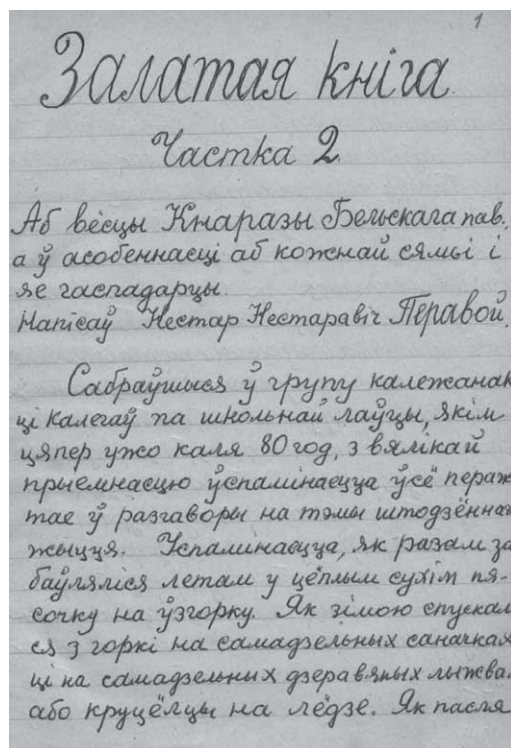 1
Залатая кніга
Частка 2
Аб вёсцы Кнаразы Бельскага пав.,
а ў асобеннасці аб кожнай сямьі і
яе гаспадарцы.
Напісаў Нестар Нестаравіч Перавой.
Сабраўшыся ў групу калежанак
ці калегаў па школьнай лаўцы, якім
цяпер ужо каля 80 год, з вялікай
прыемнасцю ўспамінаецца ўсё пераж
тае ў разгаворы на тэмы штодзённаг
жыцця. Успамінаецца, як разам за
баўляліся летам у цёплым сухім пя-
сочку на ўзгорку. Як зімою спускал
ся з горкі на самадзельных саначках
ці на самадзельных дзеравяных лыжва
або круцёлцы на лёдзе. Як пасля